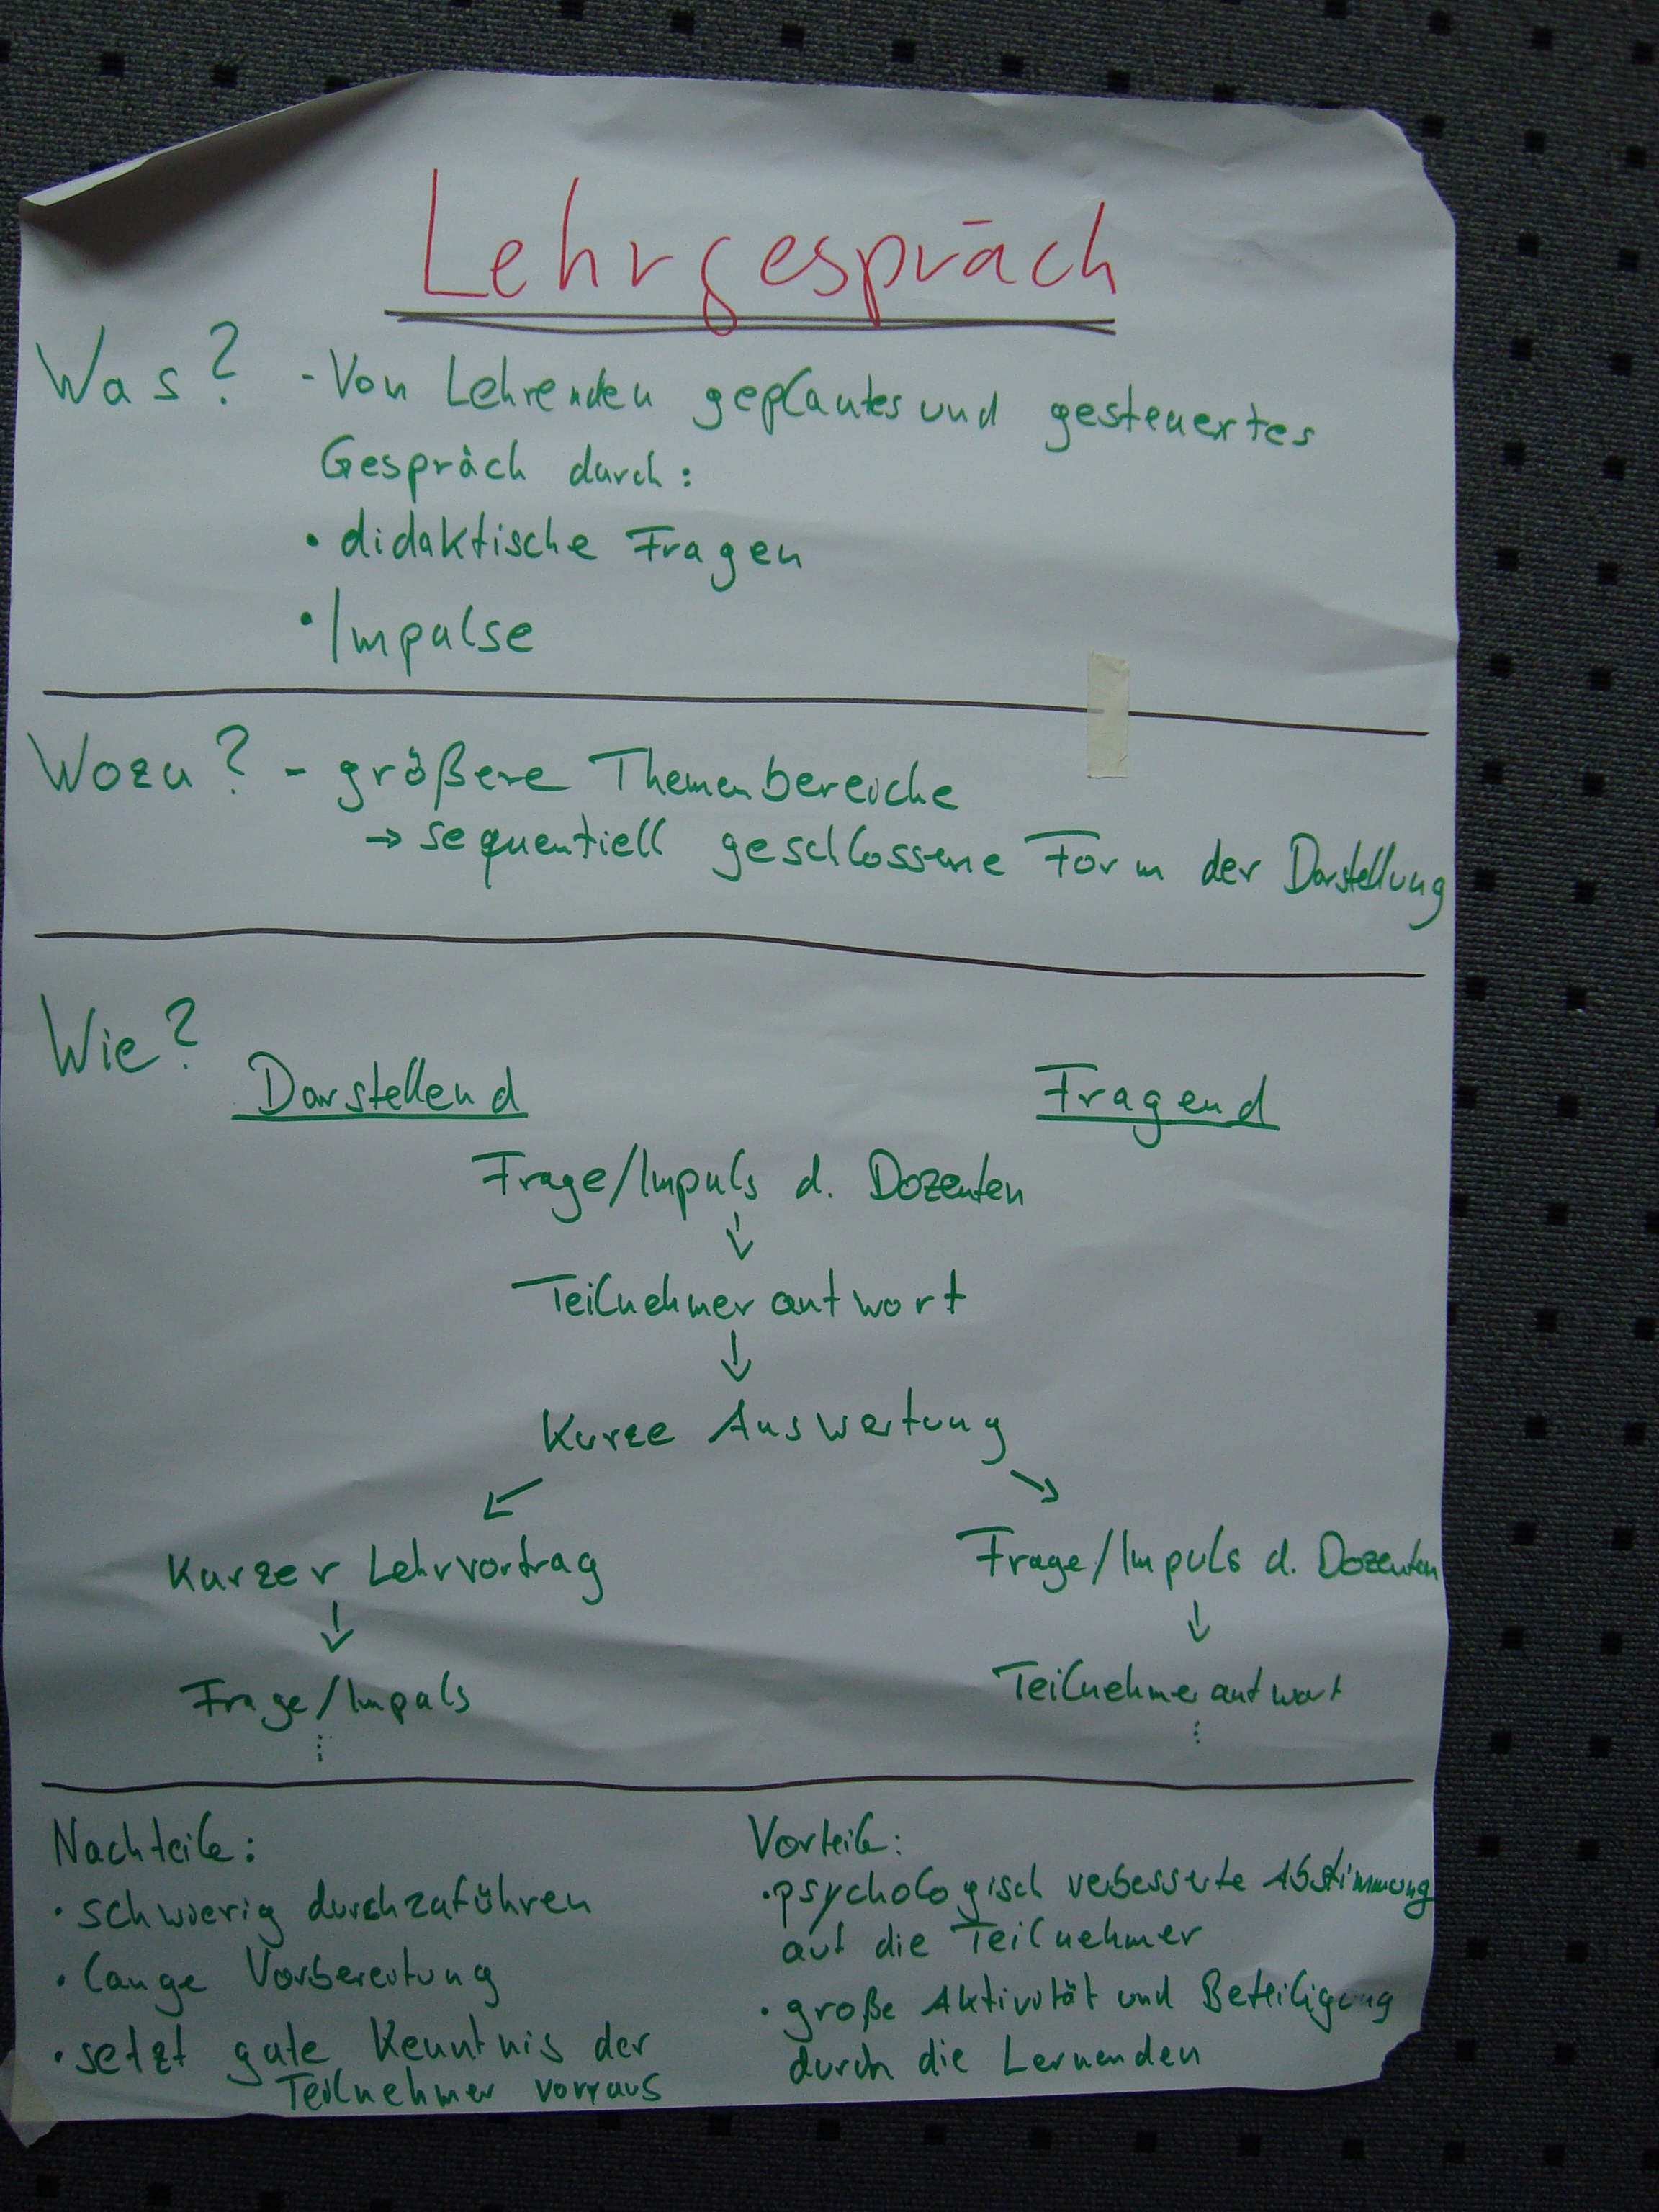 Lehrgespräch
Was? - Von Lehrenden geplantes und gesteuertes
Gespräch durch:
• didaktische Fragen
• Impulse
Wozu? - größere Themenbereiche
→ sequentiell geschlossene Form der Darstellung
Wie?
Darstellend Fragend
Frage/Impuls d. Dozenten
↓
Teilnehmerantwort
↓
Kurze Auswertung
↙ ↘
Kurzer Lehrvortrag Frage/Impuls d. Dozenten
↓ ↓
Frage/Impuls Teilnehmerantwort
⋮ ⋮
Nachteile:
• schwierig durchzuführen
• lange Vorbereitung
• setzt gute Kenntnis der
Teilnehmer vorraus
Vorteile:
• psychologisch verbesserte Abstimmung
auf die Teilnehmer
• große Aktivität und Beteiligung
durch die Lernenden